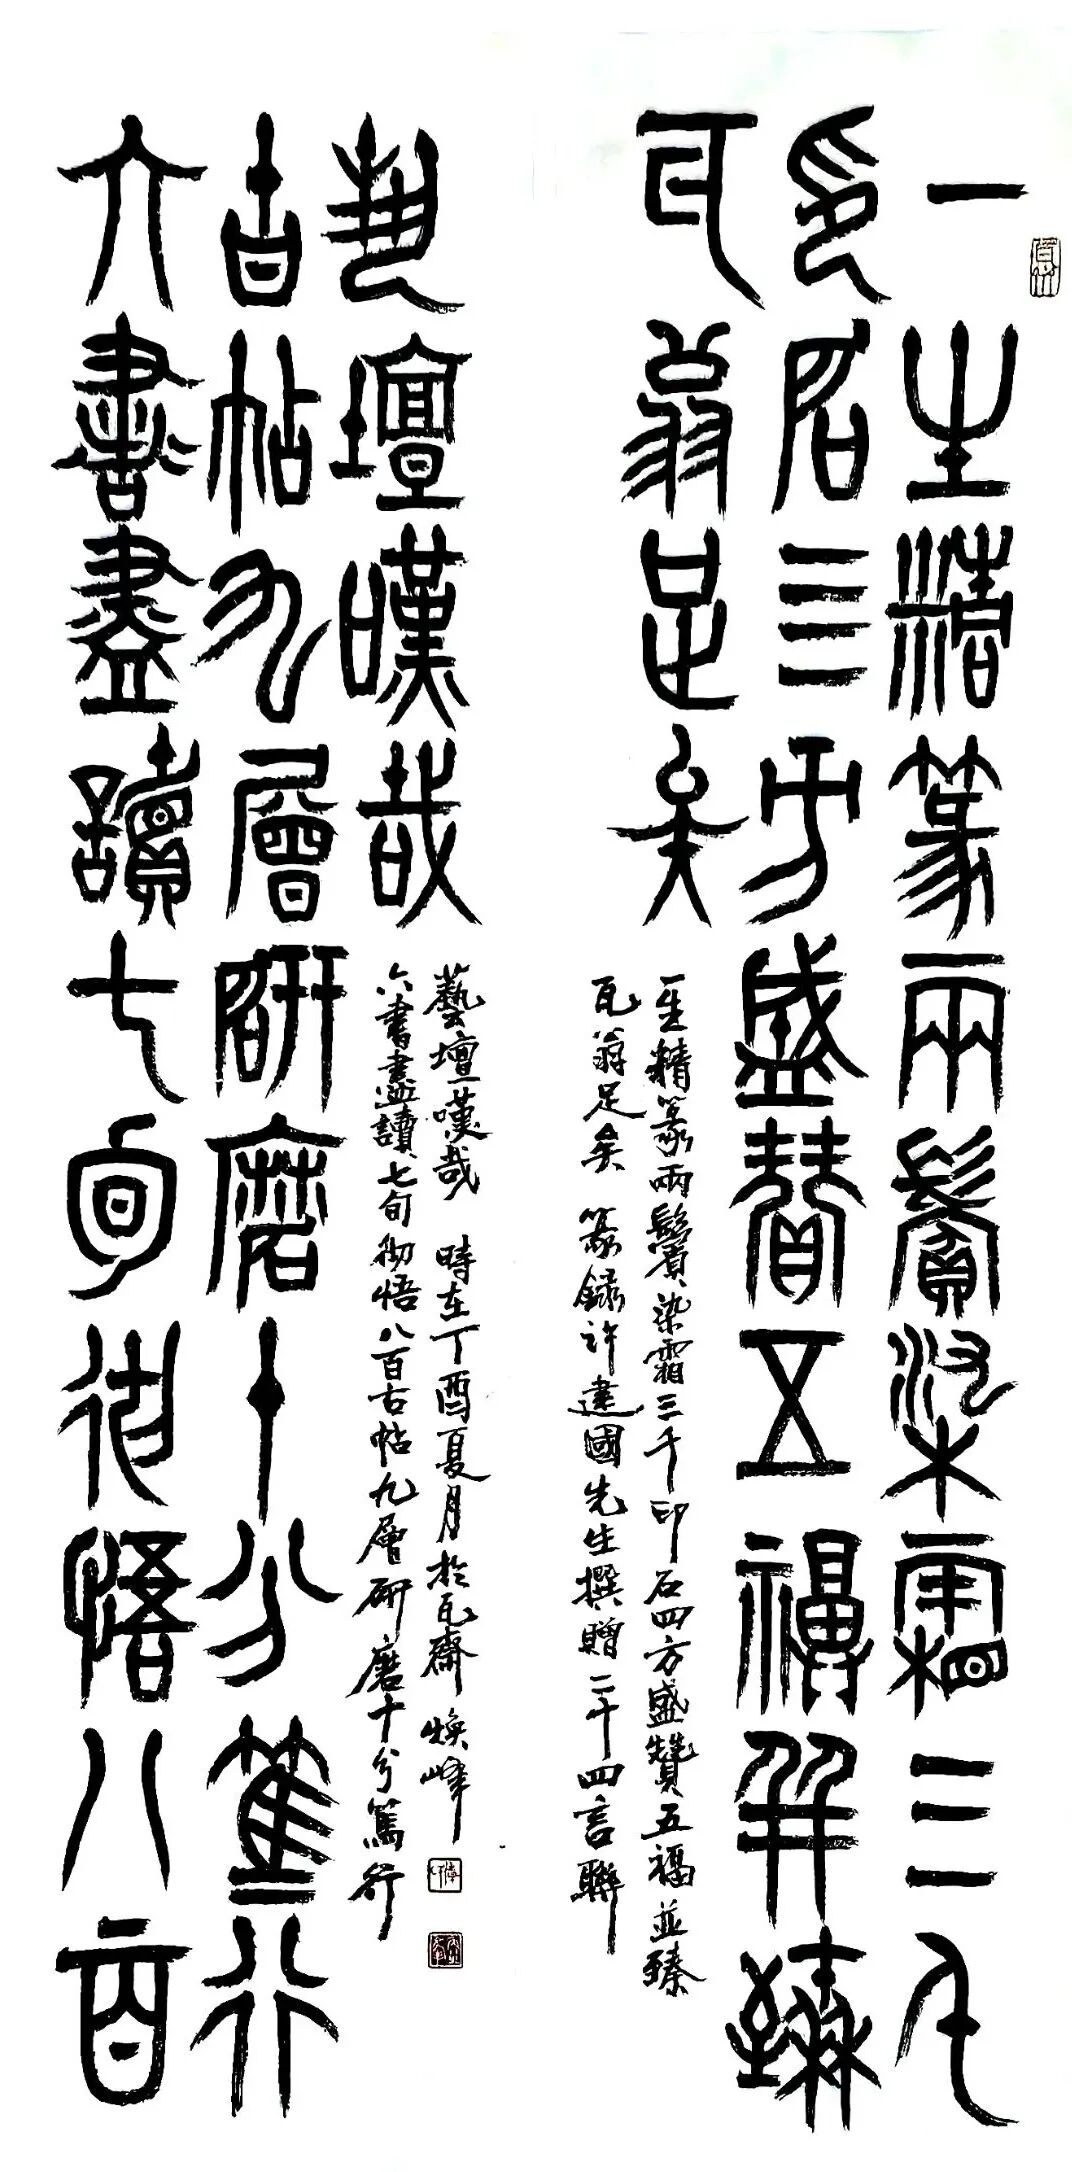 一生精篆兩鬢染霜三千
印石四方盛贊五福并臻
瓦翁足矣
一生精篆兩鬢染霜三千印石四方盛贊五福並臻
瓦翁足矣 篆錄許建國先生撰贈二十四言聯
六書盡讀七旬徹悟八百
古帖九層研磨十分篤行
藝壇嘆哉
六書盡讀七旬彻悟八百古帖九層研磨十分篤行
藝壇嘆哉 時在丁酉夏月於瓦齋 煥峰